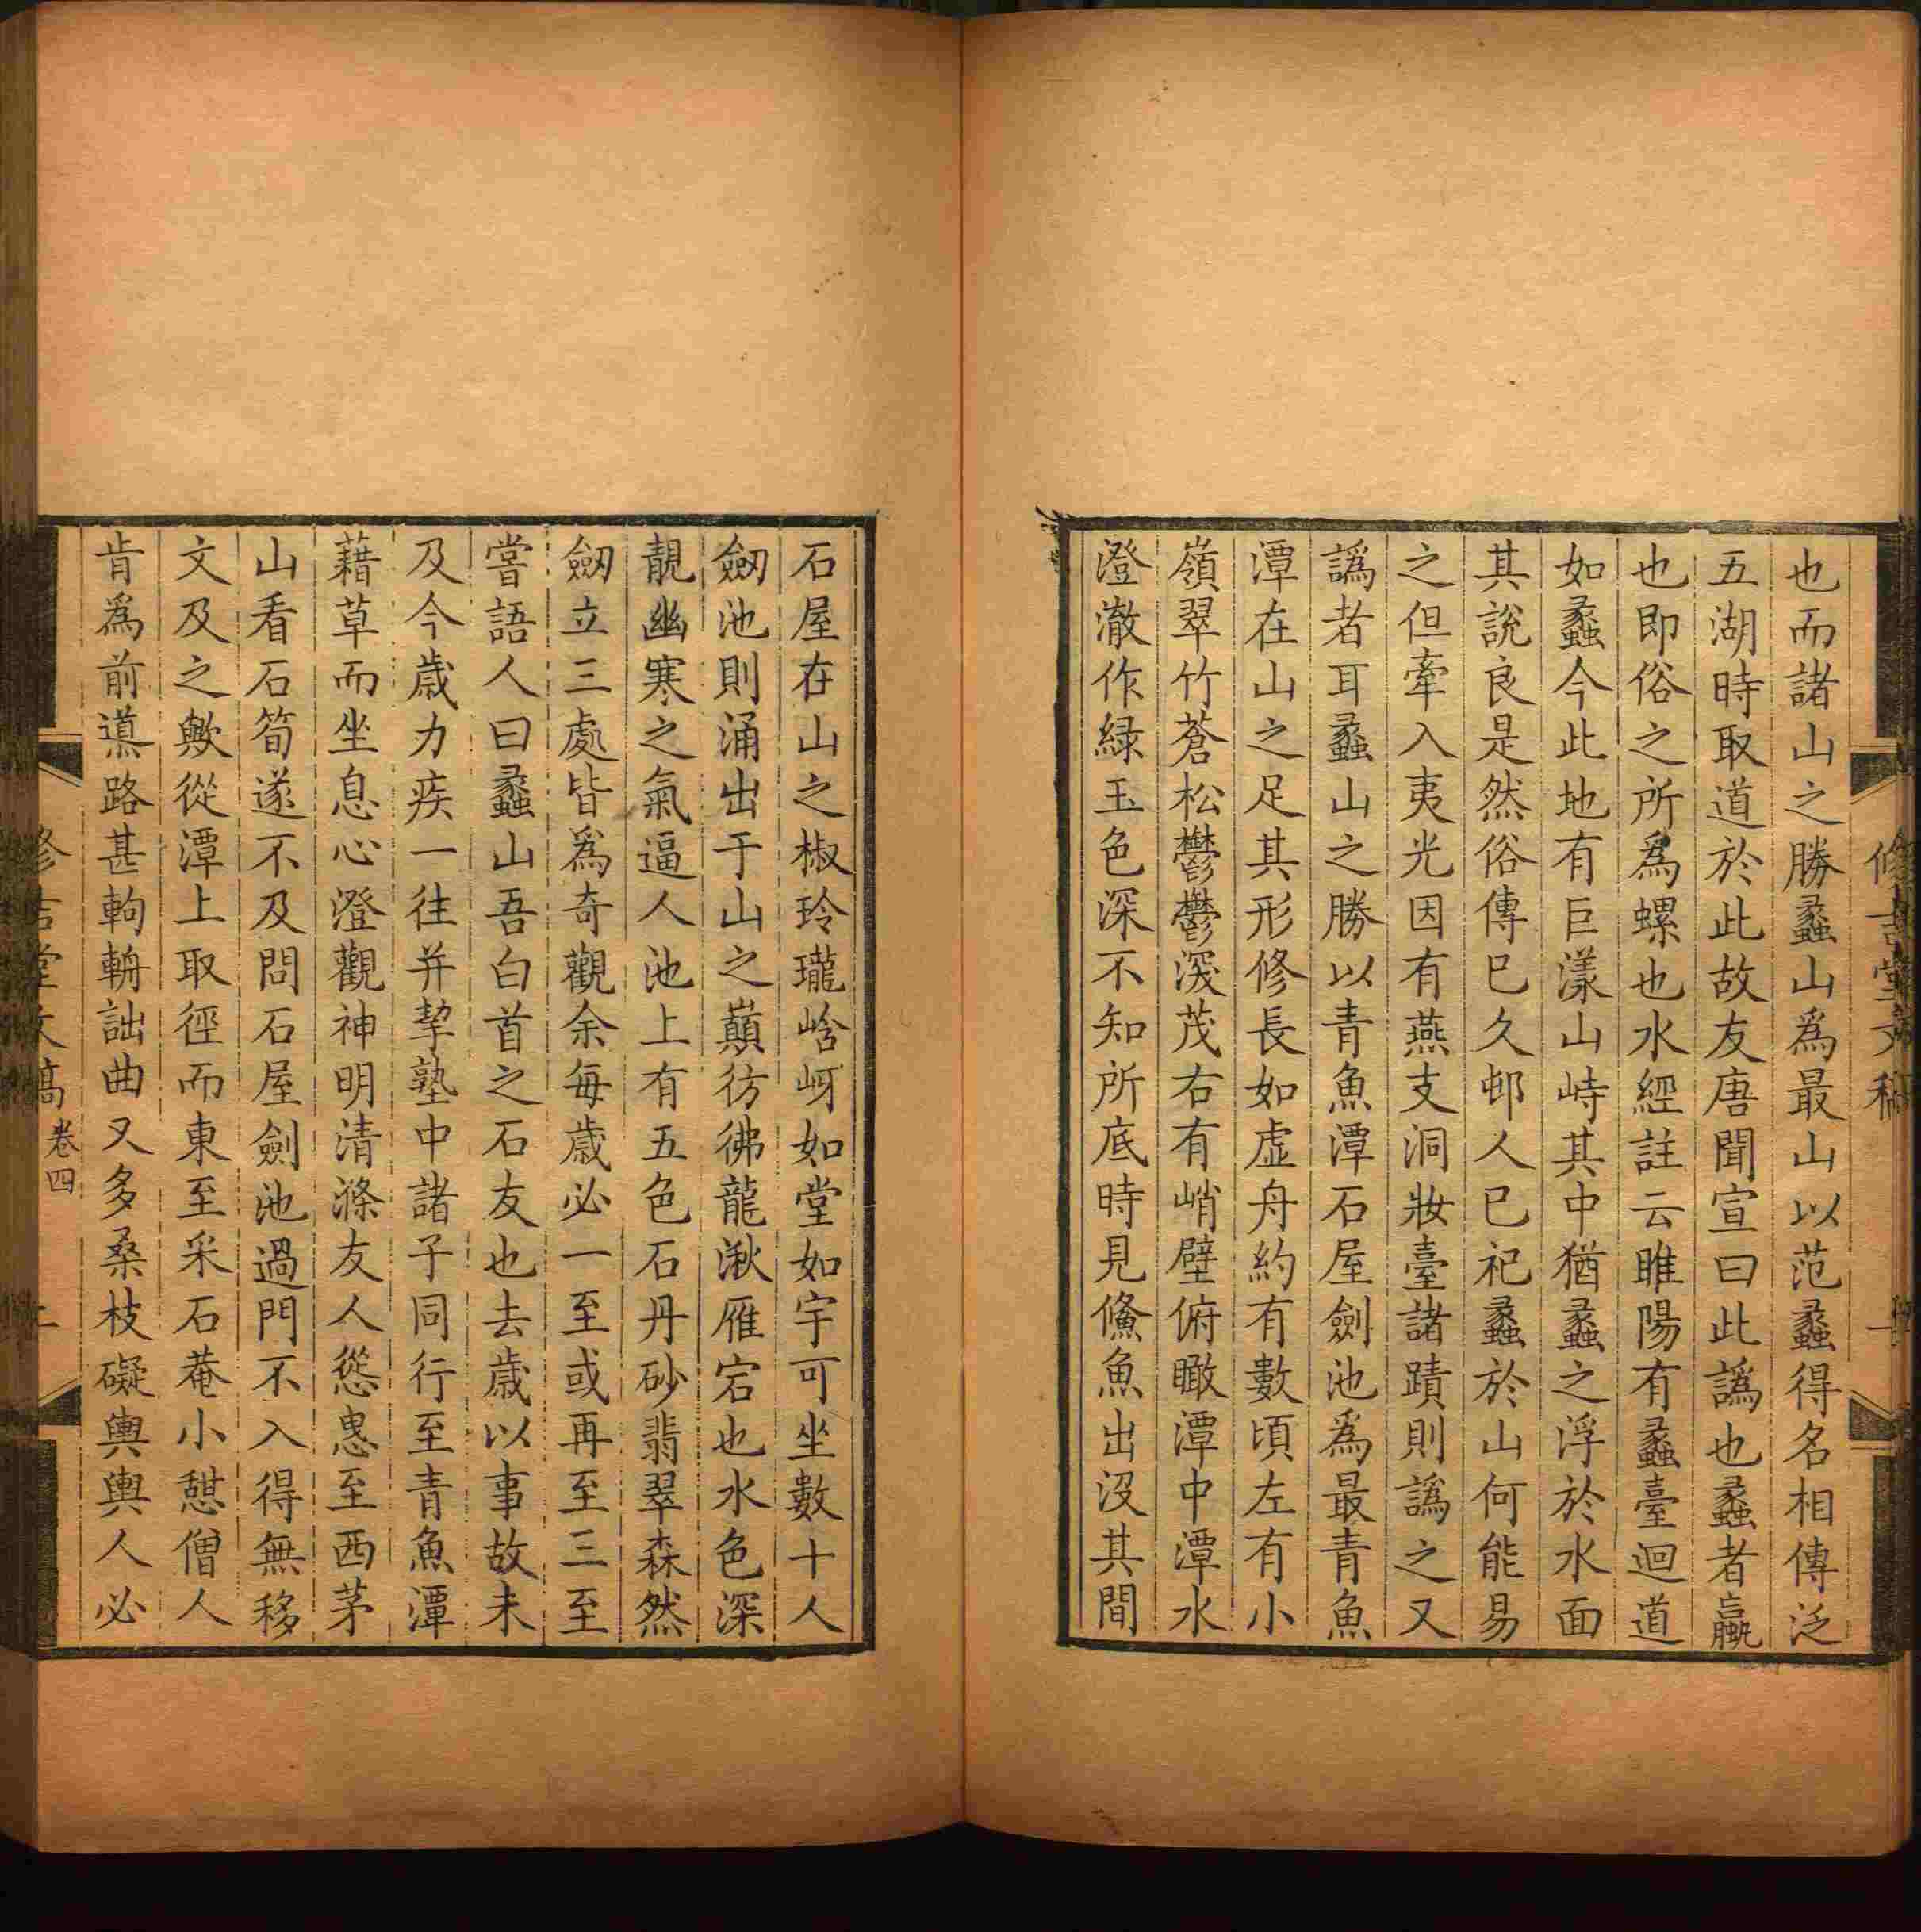 也而諸山之勝蠡山爲最山以范蠡得名相傳泛
五湖時取道於此故友唐聞宣曰此譌也蠡者蠃
也即俗之所爲螺也水經註云睢陽有蠡臺迴道
如蠡今此地有巨漾山峙其中猶蠡之浮於水面
其說良是然俗傳已久邨人已祀蠡於山何能易
之但牽入夷光因有燕支洞妝臺諸蹟則譌之又
譌者耳蠡山之勝以青魚潭石屋劍池爲最青魚
潭在山之足其形修長如虛舟約有數頃左有小
嶺翠竹蒼松鬱鬱深茂右有峭壁俯瞰潭中潭水
澄澈作綠玉色深不知所底時見鯈魚出沒其間
修吉堂文稿
石屋在山之椒玲瓏峆岈如堂如宇可坐數十人
劒池則涌出于山之巔彷彿龍湫雁宕也水色深
靚幽寒之氣逼人池上有五色石丹砂翡翠森然
劒立三處皆爲奇觀余每歲必一至或再至三至
嘗語人曰蠡山吾白首之石友也去歲以事故未
及今歲力疾一往并挈塾中諸子同行至青魚潭
藉草而坐息心澄觀神明清滌友人慫恿至西茅
山看石筍遂不及問石屋劍池過門不入得無移
文及之歟從潭上取徑而東至采石菴小憩僧人
肯爲前導路甚軥輈詘曲又多桑枝礙輿輿人必
修吉堂文稿 卷四